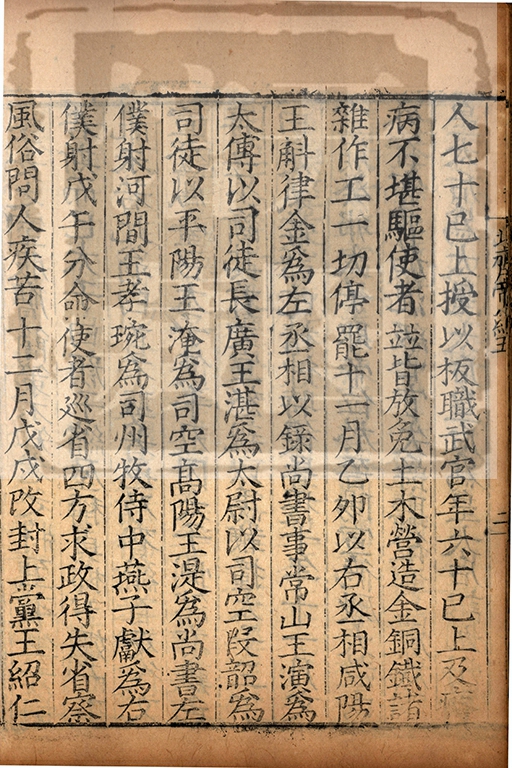 人七十已上授以板職武官年六十已上及癃
病不堪驅使者並皆放免土木營造金銅鐵諸
雜作工一切停罷十一月乙夘以右丞相咸陽
王斛律金為左丞相以錄尚書事常山王演為
太傅以司徒長廣王湛為太尉以司空段韶為
司徒以平陽王淹為司空高陽王湜為尚書左
僕射河間王孝琬為司州牧侍中燕子獻為右
僕射戊午分命使者巡省四方求政得失省察
風俗問人疾苦十二月戊戌改封上黨王紹仁